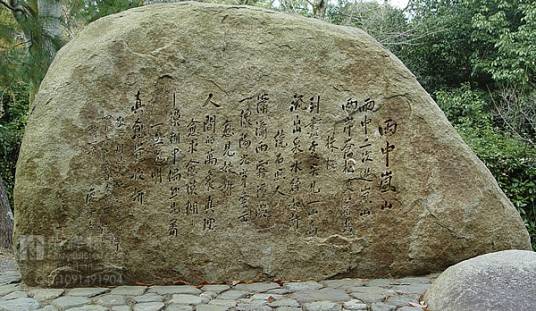 雨中嵐山
雨中二次遊嵐山
兩岸蒼松夾著
幾株櫻
到盡處突見一山高
流出泉水綠如許
繞石照人
瀟瀟雨霧濛濃
一線陽光穿雲出
愈見姣妍
人間的萬象真理
愈求愈模糊
模糊中偶然見著
一點光明
真愈覺姣妍